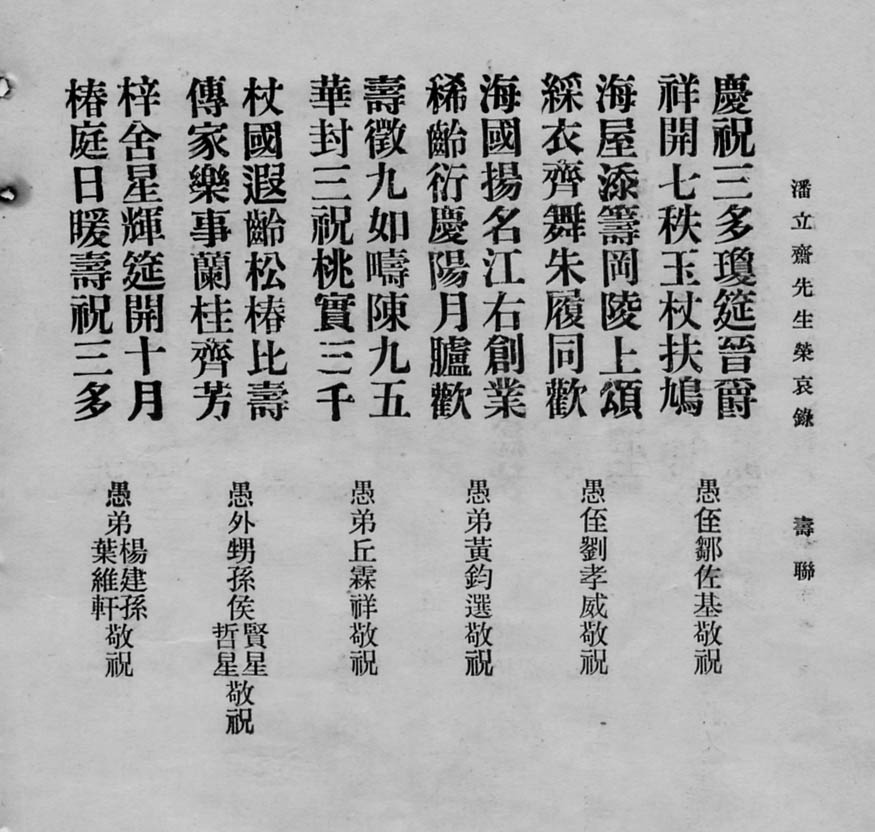 潘立齋先生榮哀錄 壽聯
慶祝三多瓊筵晉爵
祥開七秩玉杖扶鳩
愚侄鄒佐基敬祝
海屋添籌岡陵上頌
綵衣齊舞朱履同歡
愚侄劉孝威敬祝
海國揚名江右創業
稀齡衍慶陽月臚歡
愚弟黃鈞選敬祝
壽徵九如疇陳九五
華封三祝桃實三千
愚弟丘霖祥敬祝
杖國遐齡松椿比壽
傳家樂事蘭桂齊芳
愚外甥孫侯賢星哲星敬祝
梓舍星輝筵開十月
椿庭日暖壽祝三多
愚弟楊建孫葉維軒敬祝